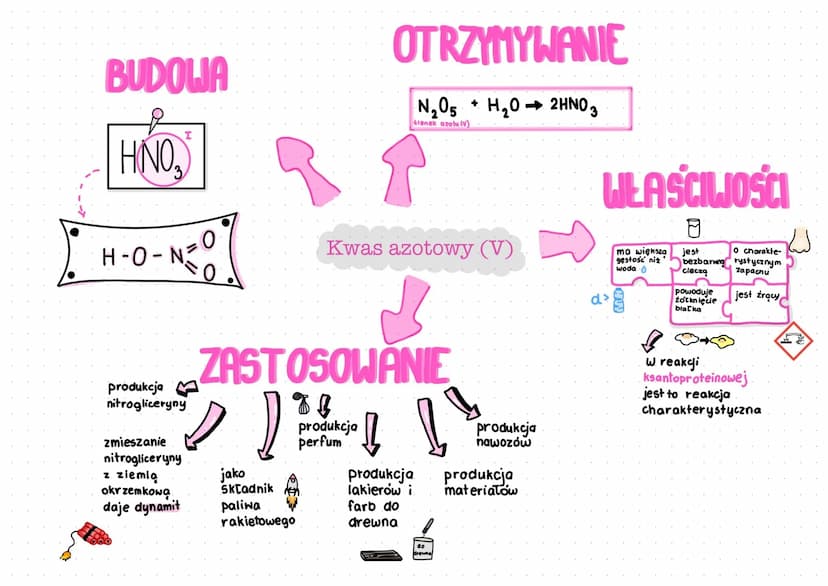 OTRZYMYWANIE
BUDOWA
N₂O₅ + H₂O → 2HNO₃
tlenek azotu(V)
I
HNO₃
H-O-N
O
O
WŁAŚCIWOŚCI
Kwas azotowy (V)
ma większą
gęstość niż
woda
jest
bezbarwną
cieczą
o charakte-
rystycznym
zapachu
d>
powoduje
żółknięcie
białka
jest żrący
w reakcji
ksantoproteinowej
jest to reakcja
charakterystyczna
ZASTOSOWANIE
produkcja
nitrogliceryny
zmieszanie
nitrogliceryny
z ziemią
okrzemkową
daje dynamit
jako
składnik
paliwa
rakietowego
produkcja
perfum
produkcja
lakierów i
farb do
drewna
produkcja
materiałów
produkcja
nawozów